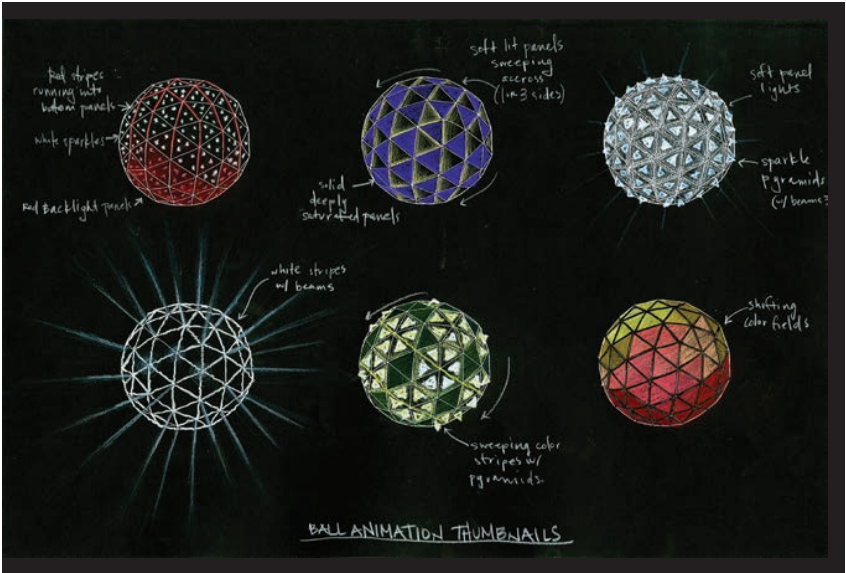 Red stripes
running into
bottom panels
white sparkles
Red Backlight panels
soft lit panels
sweeping
accross
(1 or 3 sides)
solid
deeply
saturated panels
soft panel
lights
sparkle
pyramids
(w/ beams?
white stripes
w/ beams
sweeping color
stripes w/
pyramids.
shifting
color fields
BALL ANIMATION THUMBNAILS